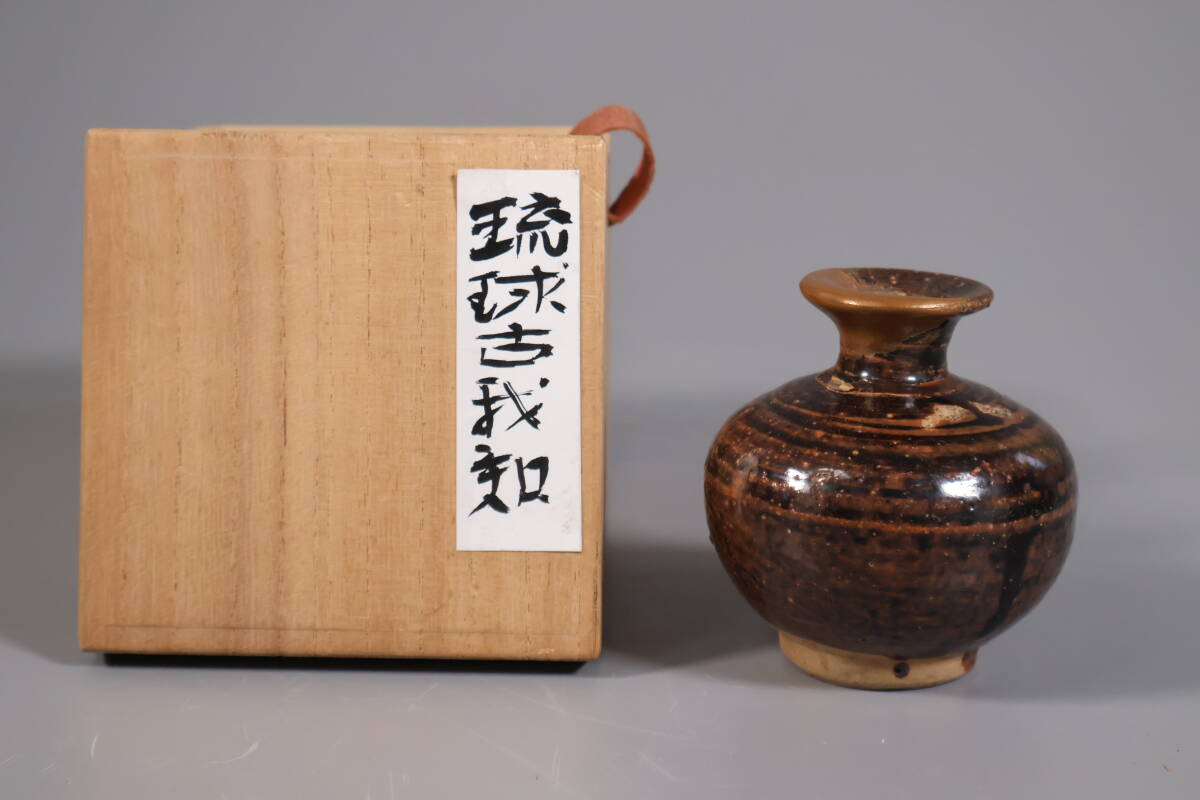 琉球古我知